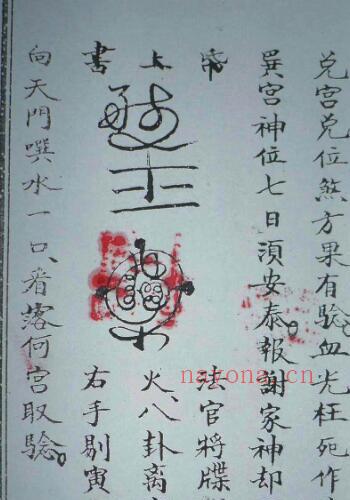 兑宮兑位煞方果有驗血光枉死作
巽宮神位七日須安泰報謝家神却
帝 法官將牒
上 火、八卦離
書 右手剔寅
向天門噀水一口、看落何宮取驗。
nayona.cn